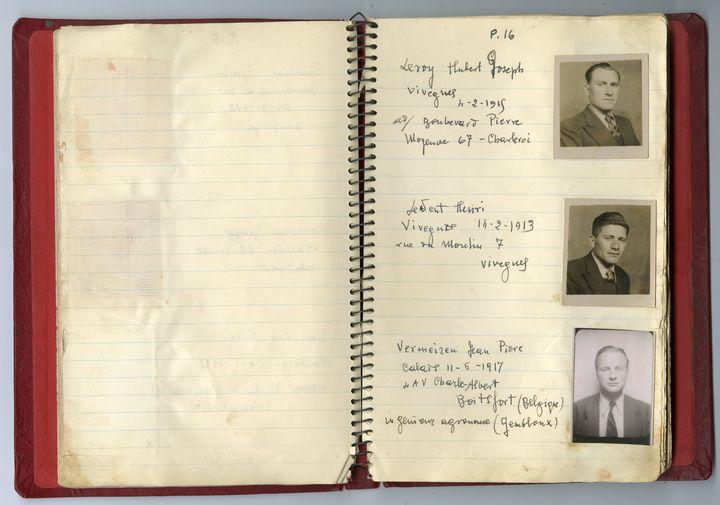 P. 16
Leroy Hubert Joseph
Vivegnes
4-2-1915
Boulevard Pierre
Mayence 67 - Charleroi
Ledent Henri
Vivegnes 14-2-1913
rue du Moulin 7
Vivegnes
Vermeiren Jean Piere
Calais 11-6-1917
4 AV Charle-Albert
Boitsfort (Belgique)
ingenieur agronome (Gembloux)